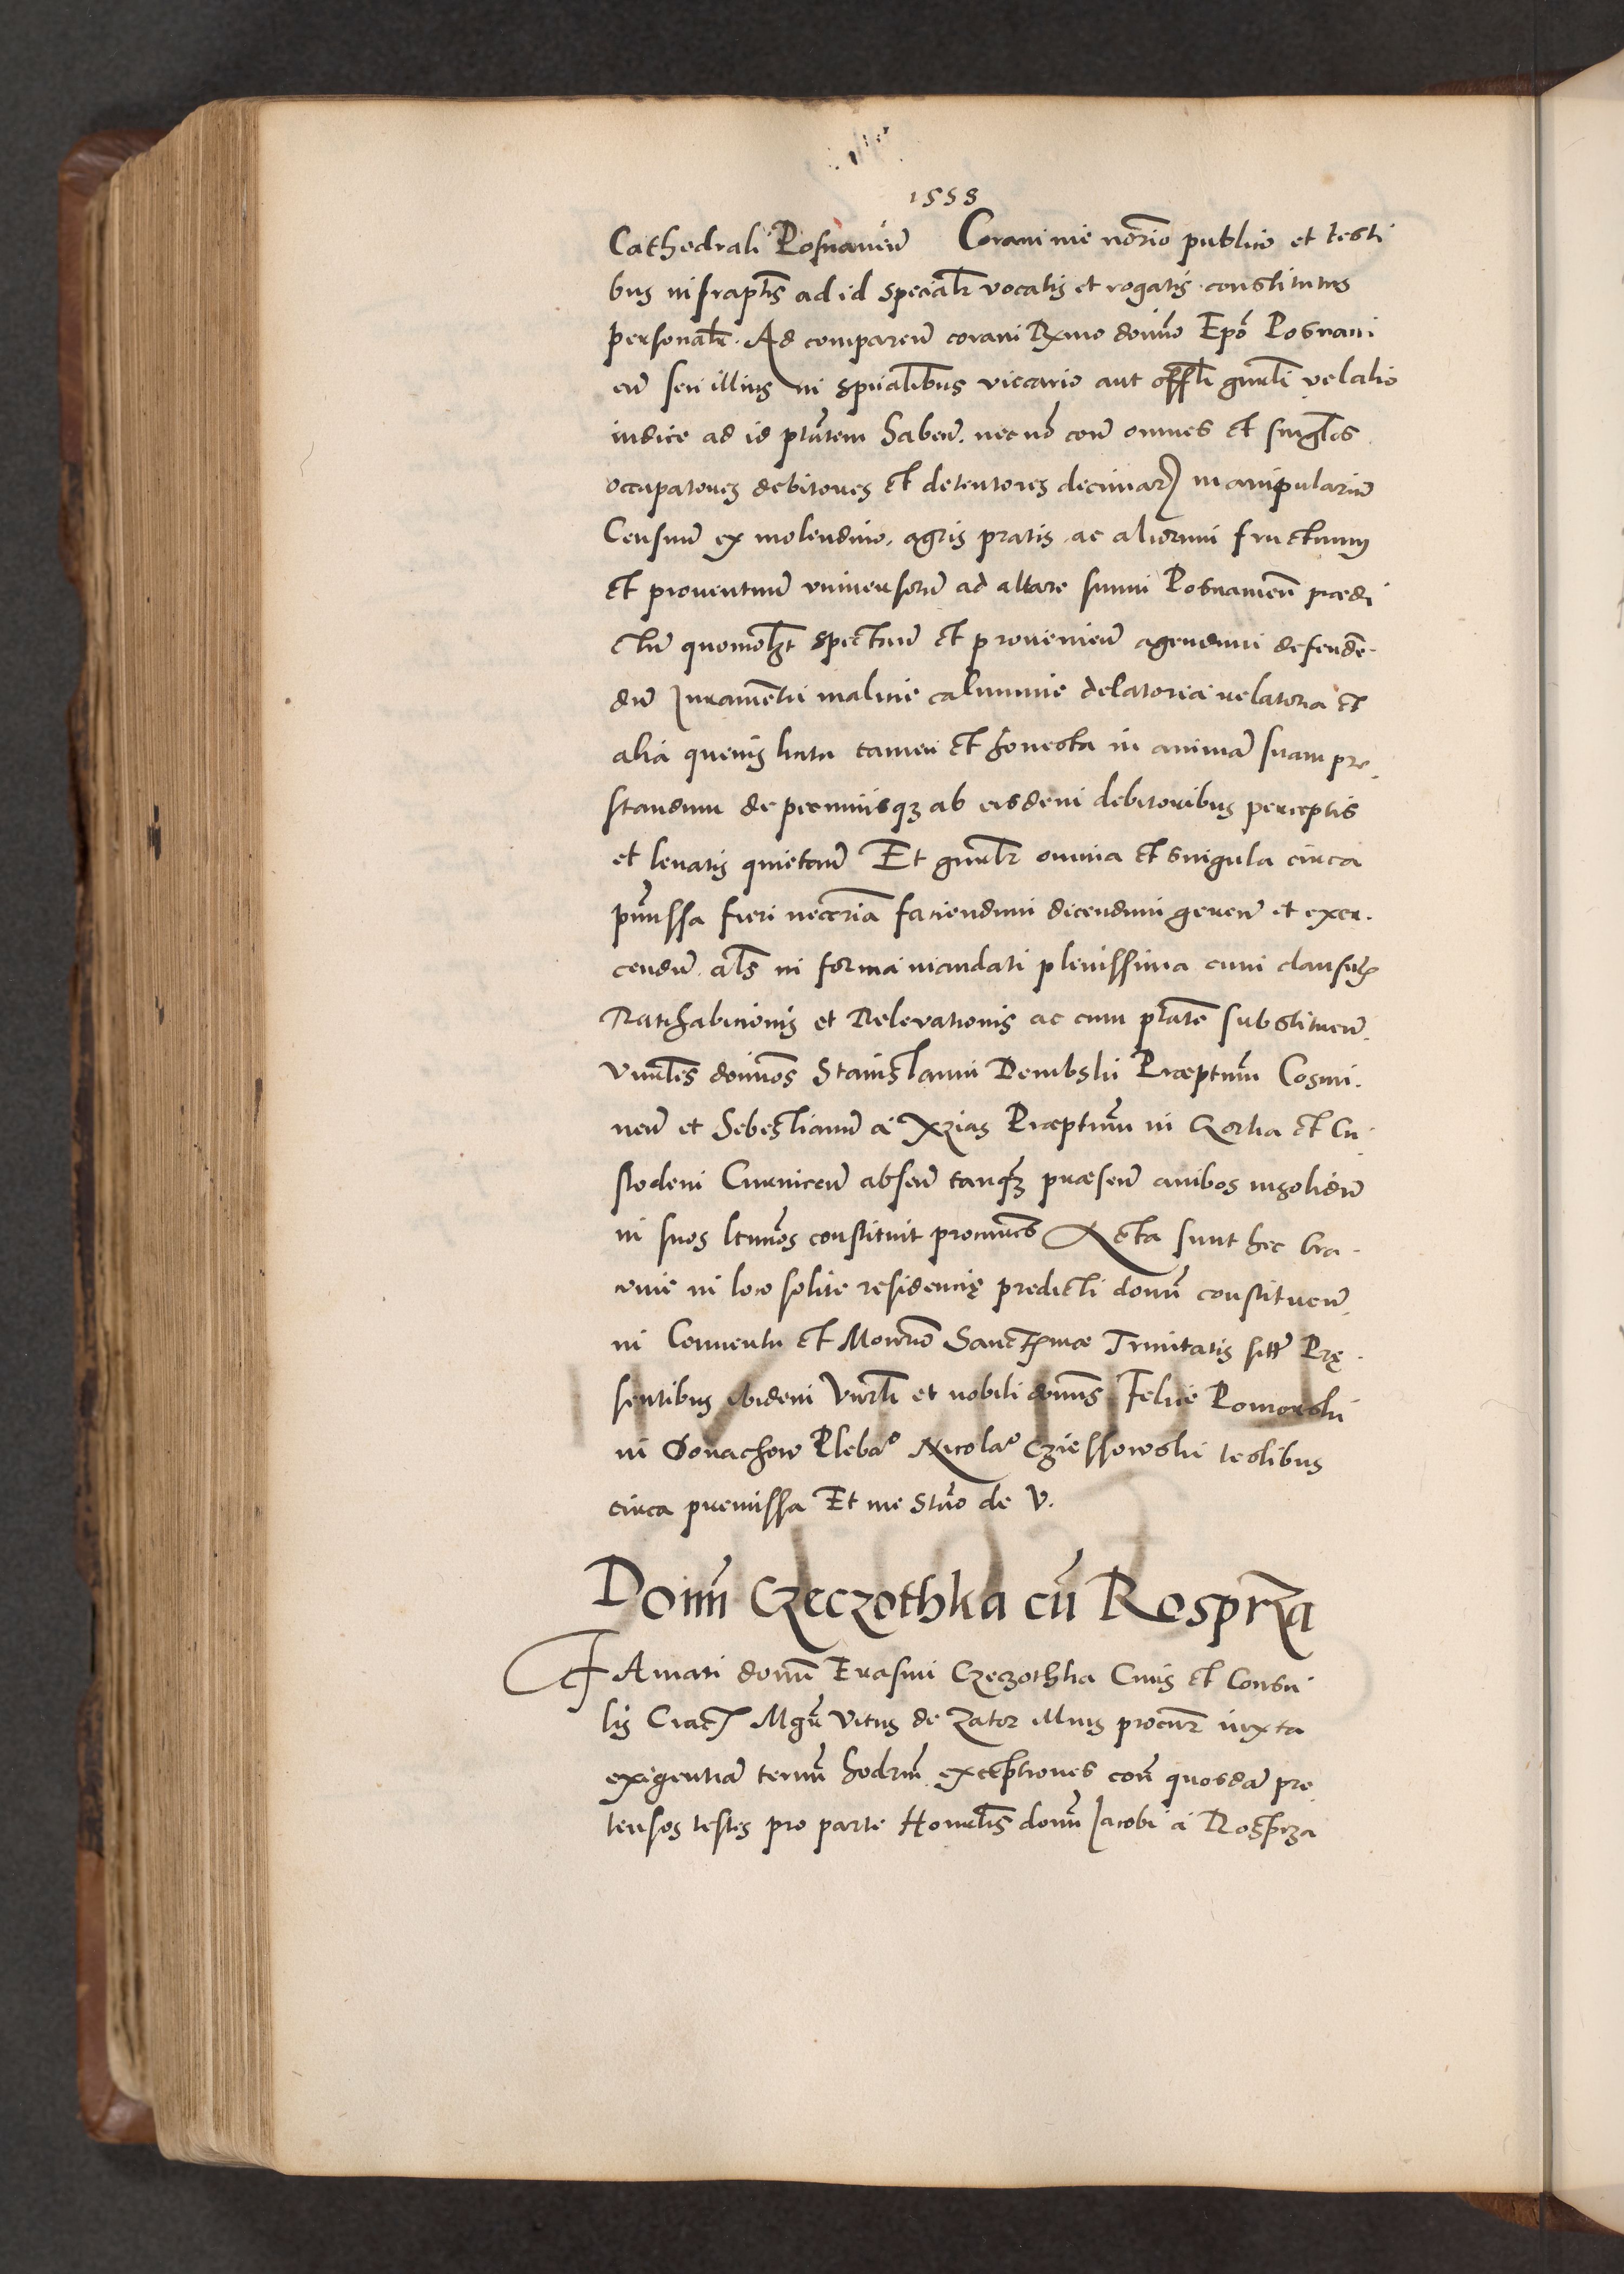 1558
Cathedrali Posnaneñ Coram me norio publico et testi
bus infraptis ad id specialr vocatis et rogatis constitutus
personalr. Ad compareñ coram Rxmo domino Epo Posnani
eñ seu illius in spiialibus viccario aut offli gnrali vel alio
iudice ad id ptatem habeñ. nec nõ con omnes et singlos
occupatores debitores et detentores decimar manipulariũ
Censuũ ex molendino, agris pratis, ac aliorum fructuum
et prouentuũ vniuersorũ ad altare suum Posnanieñ prædi
ctũ quomolzt spectañ et prouenieñ agendum defendẽ-
dũ Juramentũ malicie calumnie delatoria relatoria et
alia queuis licita tamen et honesta in animã suam pre-
standum de pecuniisqz ab eisdem debitoribus perceptis
et leuatis quietañ Et gnralr omnia et singula circa
pmissa fieri necceria faciendum dicendum gereñ et exer-
cendũ. als in forma mandati plenissima cum clausulis
Ratihabicionis et Relevationis ac cum ptate substitueñ.
Vnrales dominos Stanislaum Dembski Præptum Cosmi-
neñ et Sebestianũ a Xzias Præptum in Gorka et Cu
stodem Curniceñ abseñ tanqz præseñ ambos insolidũ
in suos ltimos constituit procures Acta sunt hec Cra-
couie in loco solite residencię predicti domini constitueñ.
in Conuentu et Monrio Sanctismæ Trinitatis sitt Prę-
sentibus ibidem Vnrali et nobili dominis Felice Pomorski
in Gonachow Plebano Nicolao Cziessowski testibus
circa premissa Et me Stnio de V.
Domini Czeczothka cũ Rosprza
FAmati domini Erasmi Czeczothka Ciuis et Consu
lis Crac Mgr Vitus de Zator illius procur iuxta
exigentiã termini hodrni exceptiones con quosdã pre
tensos testes pro parte Honralis domini Jacobi a Rosprza